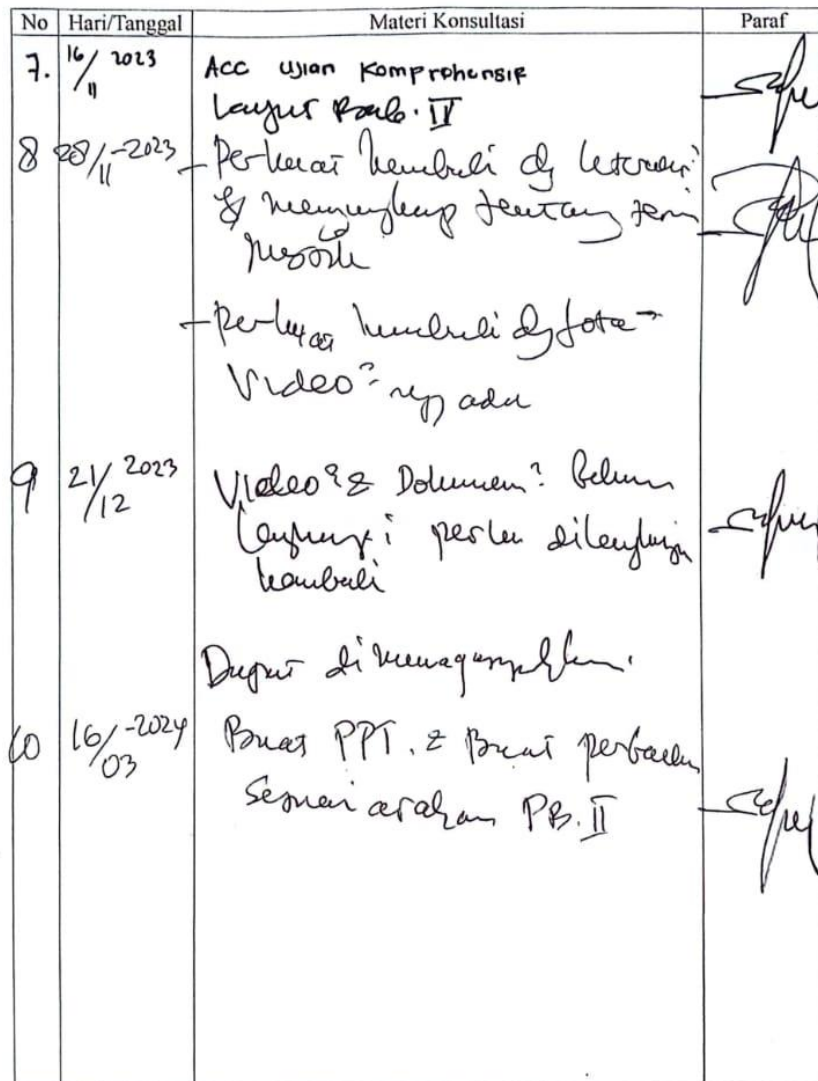 No Hari/Tanggal Materi Konsultasi Paraf
7. 16/11 2023 Acc ujian Komprehensif
Lanjut Bab. IV
8 28/11-2023 - Perkuat kembali dg literasi
& mengungkap tentang
- Perkuat kembali dg foto
Video² yg ada
9 21/12 2023 Video² & Dokumen² Belum
Lengkap; perlu dilengkapi
kembali
Dapat di
10 16/03-2024 Buat PPT. & Buat perbaikan
Sesuai arahan PB. II